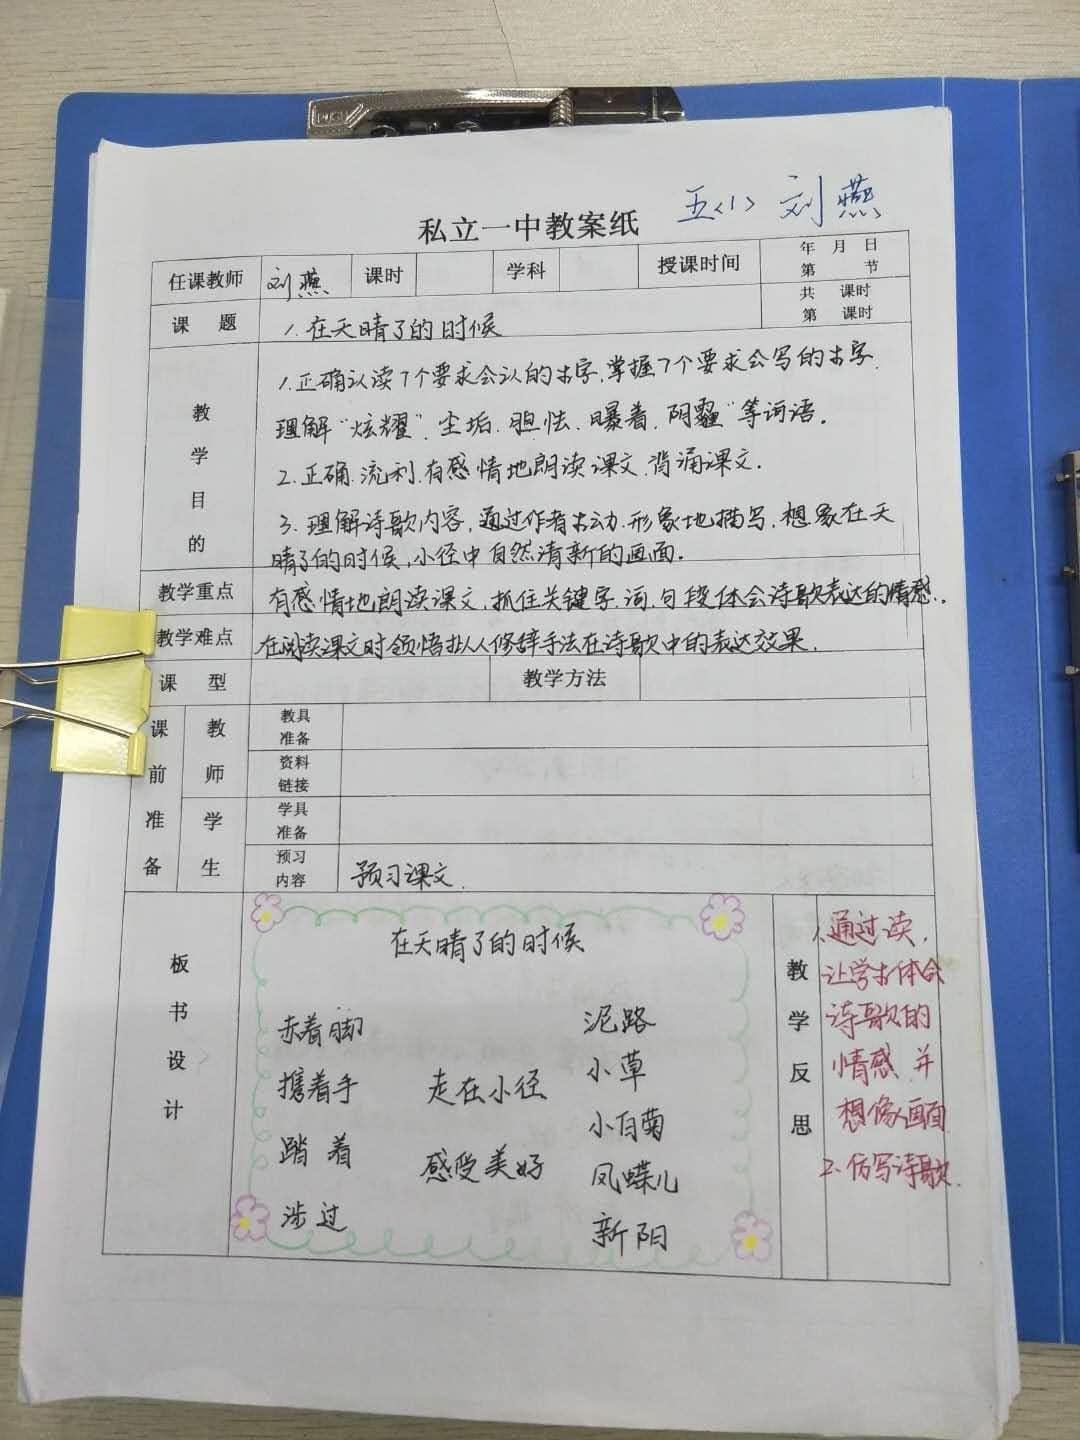 五<1> 刘燕
私立一中教案纸
任课教师 刘燕 课时 学科 授课时间 年 月 日
第 节
课 题 1.在天晴了的时候 共 课时
第 课时
教学目的
1.正确认读7个要求会认的生字.掌握7个要求会写的生字.
理解"炫耀"、尘垢、胆怯、曝着、阴霾"等词语.
2.正确.流利.有感情地朗读课文.背诵课文.
3.理解诗歌内容,通过作者生动.形象地描写,想象在天
晴了的时候,小径中自然清新的画面.
教学重点 有感情地朗读课文,抓住关键字.词.句段体会诗歌表达的情感.
教学难点 在阅读课文时领悟拟人修辞手法在诗歌中的表达效果.
课 型 教学方法
课前准备
教师
教具
准备
资料
链接
学生
学具
准备
预习
内容 预习课文.
板书设计
在天晴了的时候
赤着脚 泥路
携着手 走在小径 小草
踏着 小白菊
感受美好 凤蝶儿
涉过 新阳
教学反思
1.通过读,
让学生体会
诗歌的
情感.并
想像画面
2.仿写诗歌.